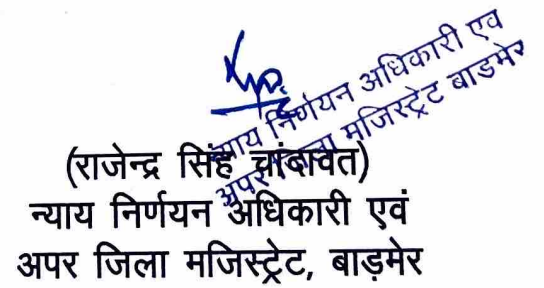 न्याय निर्णयन अधिकारी एव
अपर जिला मजिस्ट्रेट बाडमेर
(राजेन्द्र सिंह चांदावत)
न्याय निर्णयन अधिकारी एवं
अपर जिला मजिस्ट्रेट, बाड़मेर